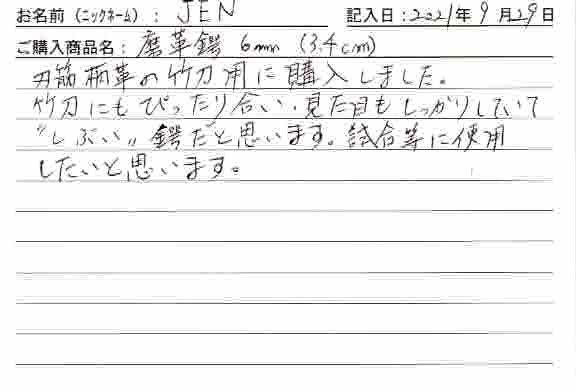 お名前（ニックネーム）: JEN 記入日:2021年9月29日
ご購入商品名: 磨革鍔 6mm (3.4cm)
刃筋柄革の竹刀用に購入しました。
竹刀にもぴったり合い、見た目もしっかりしていて
"しぶい" 鍔だと思います。試合等に使用
したいと思います。